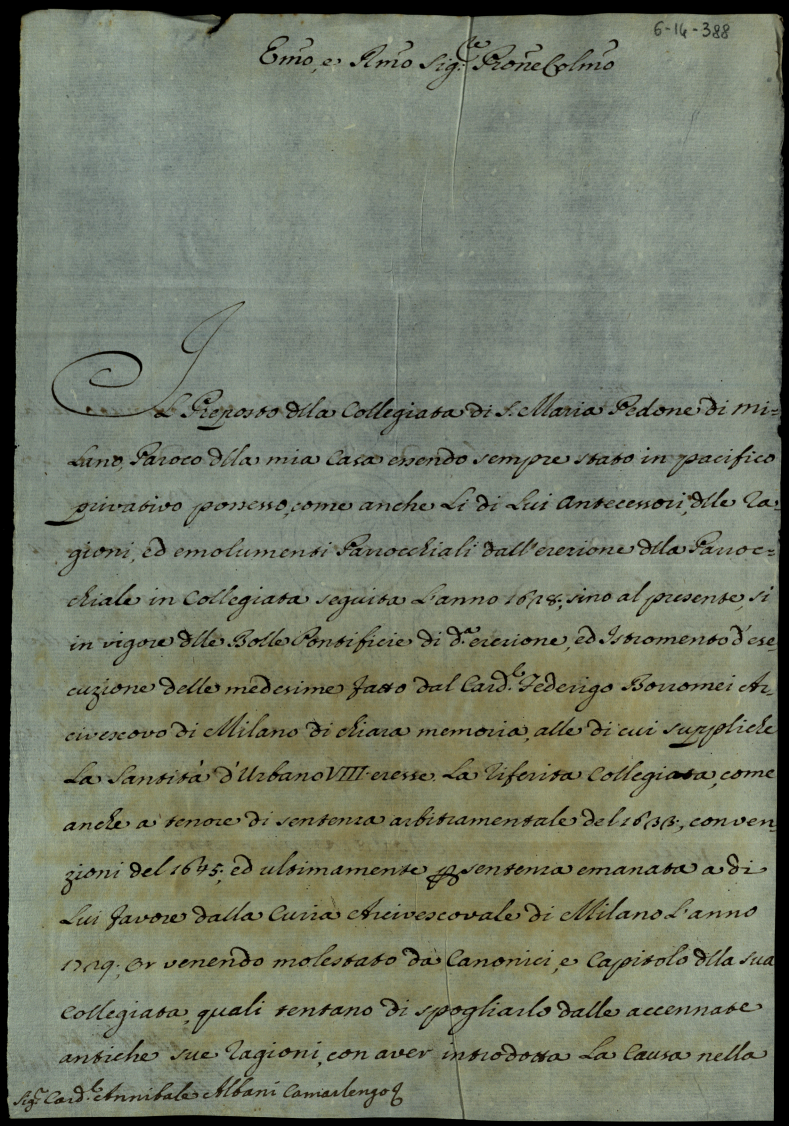 6-14-388
Emo, e Rmo Sig.re Prone Colmo
IL Proposto dlla Collegiata di S. Maria Pedone di Mi=
lano, Paroco dlla mia Casa essendo sempre stato in pacifico
privativo possesso, come anche Li di Lui Antecessori, dlle Ra-
gioni, ed emolumenti Parrocchiali dall'erezione dlla Parroc-
chiale in Collegiata seguita L'anno 1628, sino al presente, si
in vigore dlle Bolle Pontificie di d.a erezione, ed Istromento d'ese-
cuzione delle medesime fatto dal Card.le Federigo Borromei Ar-
civescovo di Milano di chiara memoria, alle di cui suppliche
La Santità d'Urbano VIII eresse La riferita Collegiata, come
anche a tenore di sentenza arbitramentale del 1633, conven-
zioni del 1645, ed ultimamente sentenza emanata a di
Lui favore dalla Curia Arcivescovale di Milano L'anno
1729; Or venendo molestato da Canonici, e Capitolo dlla sua
Collegiata, quali tentano di spogliarlo dalle accennate
antiche sue Ragioni, con aver introdotta La Causa nella
Sig.r Card.le Annibale Albani Camarlengo